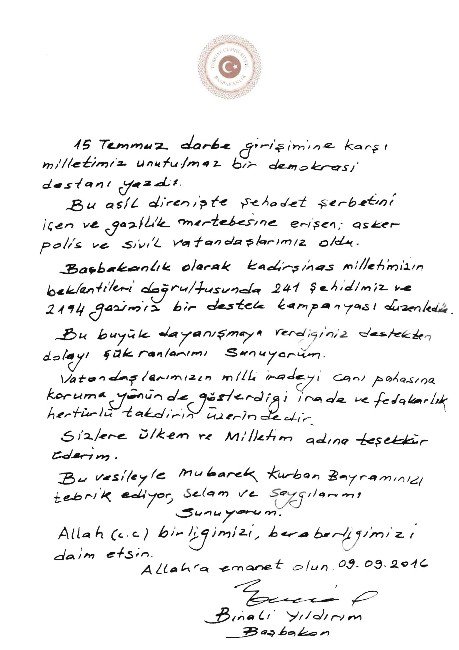 15 Temmuz darbe girişimine karşı
milletimiz unutulmaz bir demokrasi
destanı yazdı.
Bu asil direnişte şehadet şerbetini
içen ve gazilik mertebesine erişen; asker
polis ve sivil vatandaşlarımız oldu.
Başbakanlık olarak kadirşinas milletimizin
beklentileri doğrultusunda 241 şehidimiz ve
2194 gazimiz bir destek kampanyası düzenledik.
Bu büyük dayanışmaya verdiğiniz destekten
dolayı şükranlarımı sunuyorum.
Vatandaşlarımızın milli iradeyi canı pahasına
koruma yönünde gösterdiği irade ve fedakarlık
hertürlü takdirin üzerindedir.
Sizlere ülkem ve Milletim adına teşekkür
ederim.
Bu vesileyle mubarek Kurban Bayramınızı
tebrik ediyor, selam ve saygılarımı
sunuyorum.
Allah (c.c) birliğimizi, beraberliğimizi
daim etsin.
Allah'a emanet olun. 09.09.2016
Binali Yıldırım
Başbakan